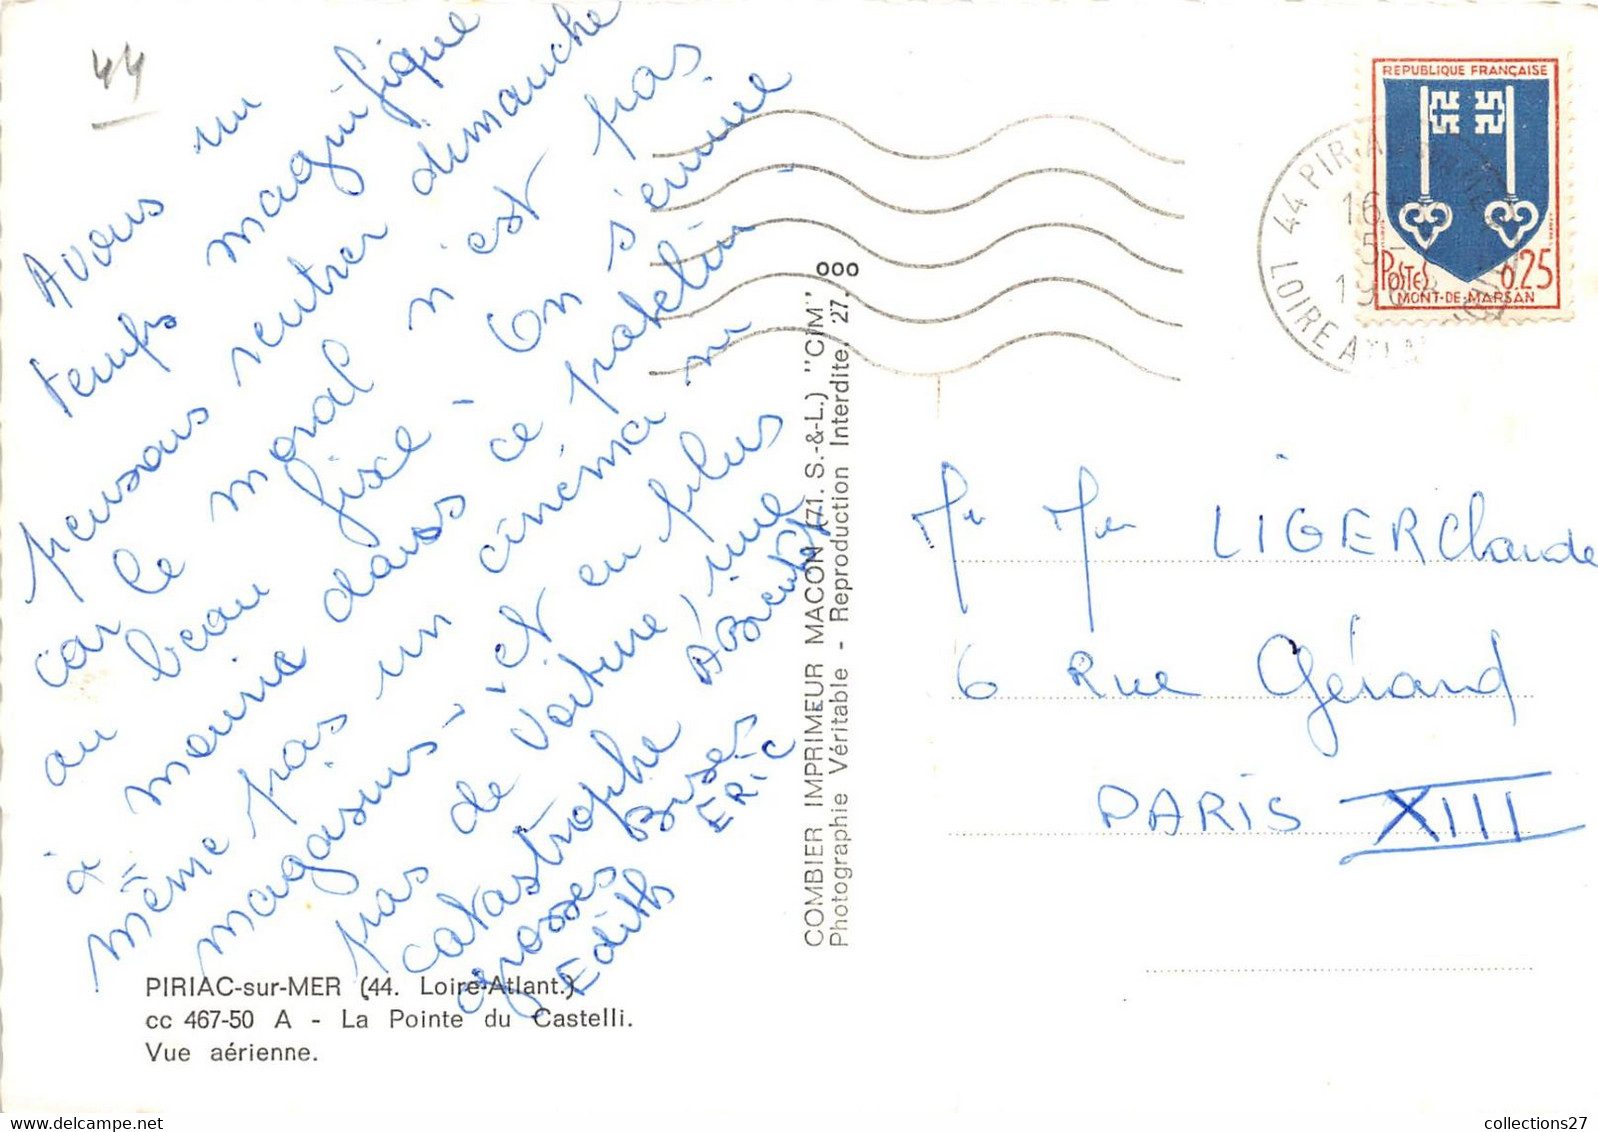 44
Avons un
temps magnifique
pensons rentrer dimanche
car le moral n'est pas
au beau fixe - On s'ennuie
à mourir dans ce patelin -
même pas un cinéma ni
magasins - et en plus
pas de voiture, une
catastrophe A Bientôt
grosses Bises
Edith ERIC
PIRIAC-sur-MER (44. Loire-Atlant.)
cc 467-50 A - La Pointe du Castelli.
Vue aérienne.
COMBIER IMPRIMEUR MACON (71. S.-&-L.) "CIM"
Photographie Véritable - Reproduction Interdite. 27.
ooo
REPUBLIQUE FRANÇAISE
POSTES 0,25
MONT-DE-MARSAN
44 PIRIAC
16
5
LOIRE ATLAN
Mr Mme LIGER Claude
6 Rue Gérard
PARIS XIII
collections27